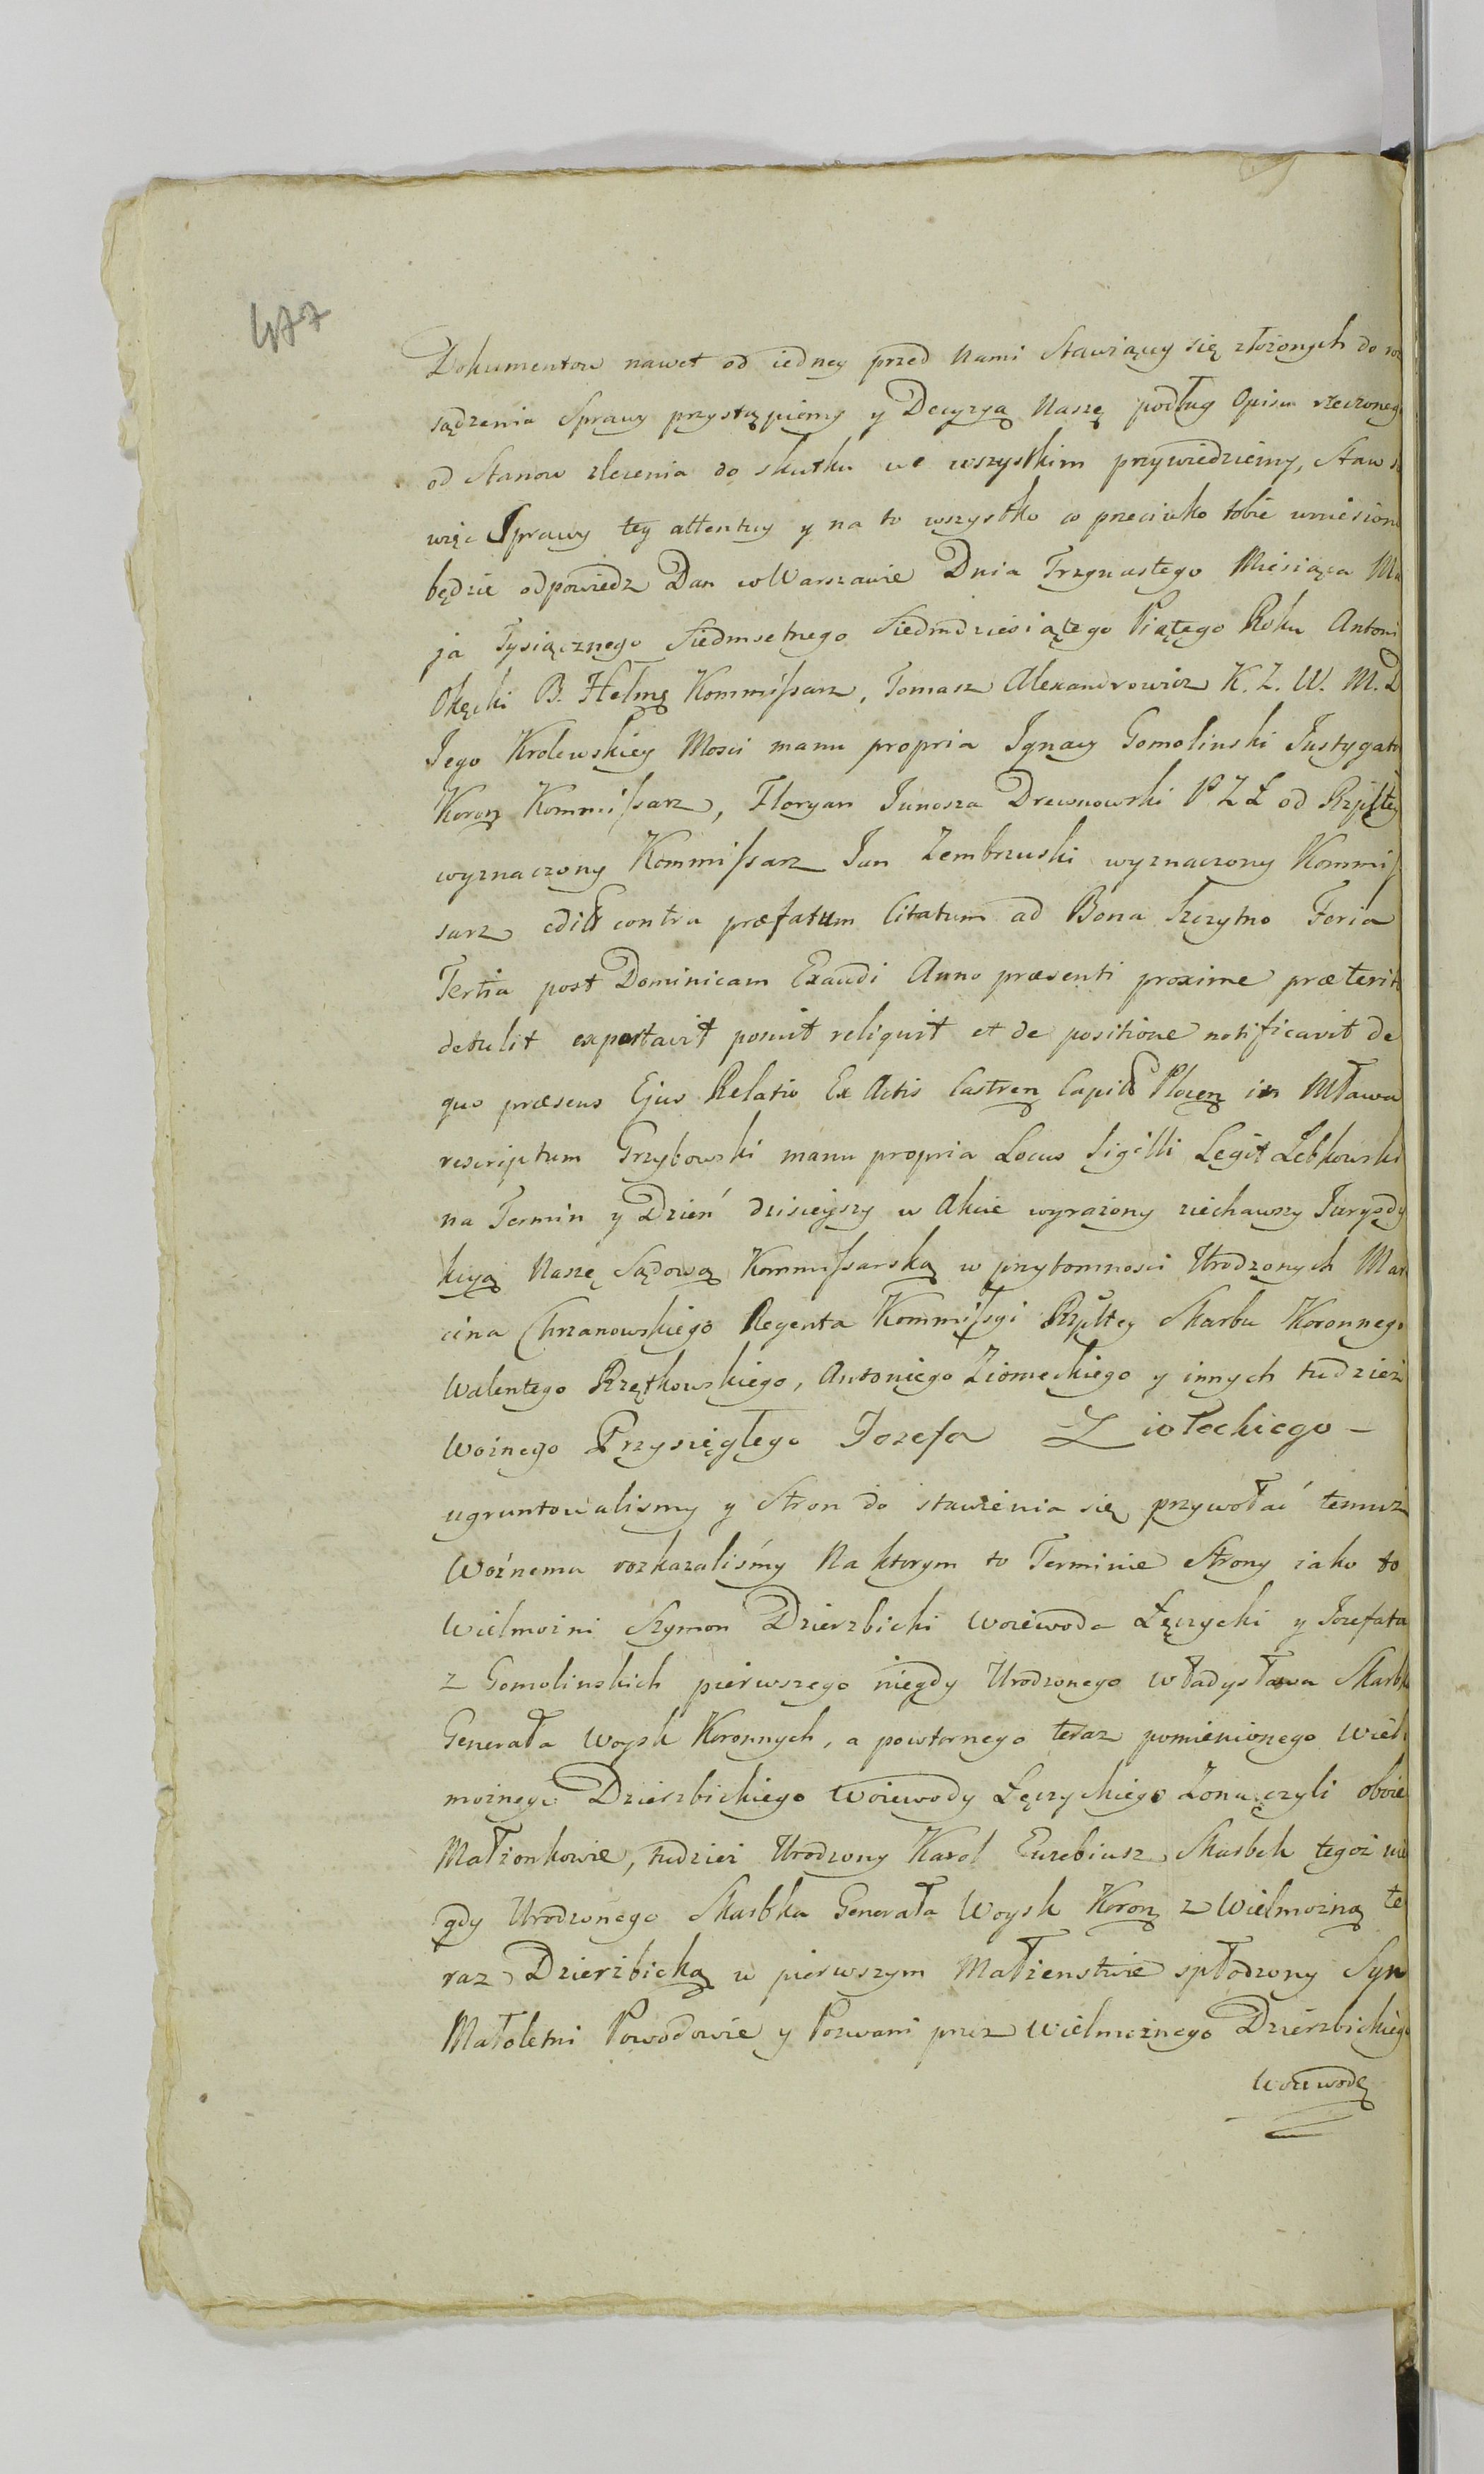 477
Dokumentow nawet od iedney przed Nami Stawiący się złożonych do roz
sądzenia Sprawy przystąpiemy y Decyzyą Naszę podług Opisu rzeczoneg
od Stanow zlecenia do skutku we wszystkim przywiedziemy, Staw s
więc Sprawy tey attentuy y na to wszystko co przeciwko tobie wniesion
będzie odpowiedz Dan w Warszawie Dnia Trzynastego Miesiąca Ma
ja Tysiącznego Siedmsetnego Siedmdziesiątego Piątego Roku Antoni
Okęcki B. Helmę Kommissarz, Tomasz Alexandrowicz K. Z. W. M. D
Jego Krolewskiey Mosci manu propria Ignacy Gomolinski Instygato
Koroņ Kommissarz, Floryan Junosza Drewnowski P Z Ł od Rzpltey
wyznaczony Kommissarz Jan Zembrzuski wyznaczony Kommis
sarz edit contra præfatum Citatum ad Bona Szczytno Feria
Tertia post Dominicam Exaudi Anno præsenti proxime præterit
detulit exportavit posuit reliquit et de positione notificavit de
quo præsens Ejus Relatio Ex Actis Castren Capit Plocen in Mława
rescriptum Grzybowski manu propria Locus Sigilli Legit Lebkowski
na Termin y Dzień dzisieyszy w Akcie wyrażony ziechawszy Juryzdy
kcyą Naszę Sądową Kommissarską w przytomnosci Urodzonych Mar
cina Chrzanowskiego Regenta Kommissyi Rzpltey Skarbu Koronnego
Walentego Rzętkowskiego, Antoniego Ziomeckiego y innych tudzież
Woźnego Przysięgłego Jozefa Ziołeckiego –
ugruntowalismy y Stron do stawienia się przywołać temuż
Woźnemu rozkazaliśmy Na ktorym to Terminie Strony iako to
Wielmożni Szymon Dzierzbicki Woiewoda Łęczycki y Jozefata
z Gomolinskich pierwszego niegdy Urodzonego Władysława Skarbk
Generała Woysk Koronnych, a powtornego teraz pomienionego Wiel
możnego Dzierzbickiego Woiewody Łęczyckiego Zona czyli oboie
Małżonkowie, tudzież Urodzony Karol Euzebiusz Skarbek tegoż nie
gdy Urodzonego Skarbka Generała Woysk Koroņ z Wielmożną te
raz Dzierżbicką w pierwszym Małżenstwie spłodzony Syn
Małoletni Powodowie y Pozwani przez Wielmożnego Dzierzbickieg
Woiewodę